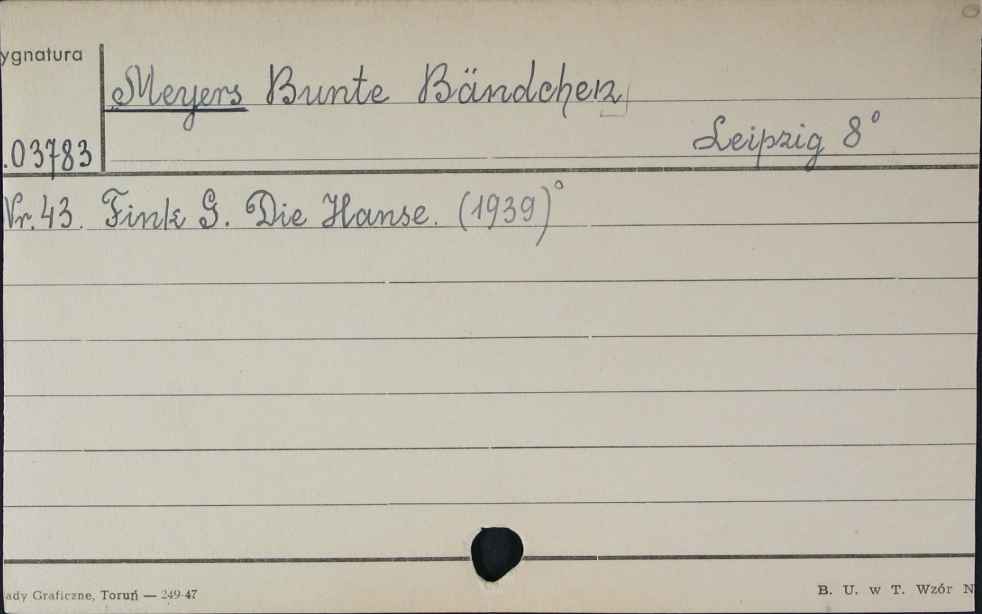 ygnatura
Meyers Bunte Bändchen
Leipzig 8°
.03783
Nr. 43. Fink G. Die Hanse. (1939)°
ady Graficzne, Toruń — 249-47
B. U. w T. Wzór N